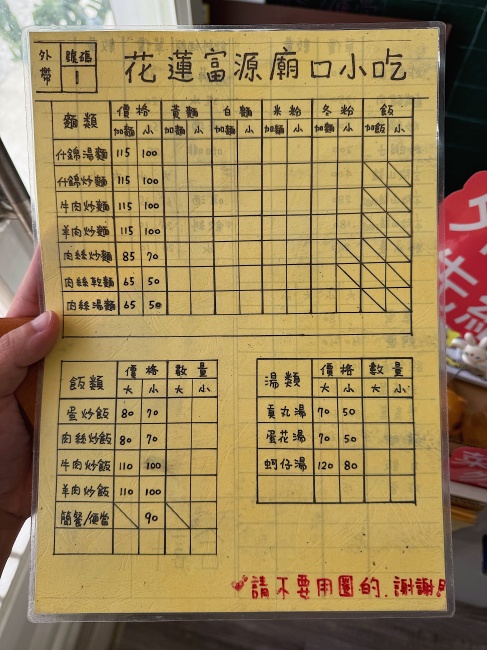 外帶 號碼 1 花蓮富源廟口小吃
麵類 價格 黃麵 白麵 米粉 冬粉 飯
加麵 小 加麵 小 加麵 小 加麵 小 加麵 小 加飯 小
什錦湯麵 115 100
什錦炒麵 115 100
牛肉炒麵 115 100
羊肉炒麵 115 100
肉絲炒麵 85 70
肉絲乾麵 65 50
肉絲湯麵 65 50
飯類 價格 數量
大 小 大 小
蛋炒飯 80 70
肉絲炒飯 80 70
牛肉炒飯 110 100
羊肉炒飯 110 100
簡餐/便當 90
湯類 價格 數量
大 小 大 小
貢丸湯 70 50
蛋花湯 70 50
蚵仔湯 120 80
請不要用圈的.謝謝!